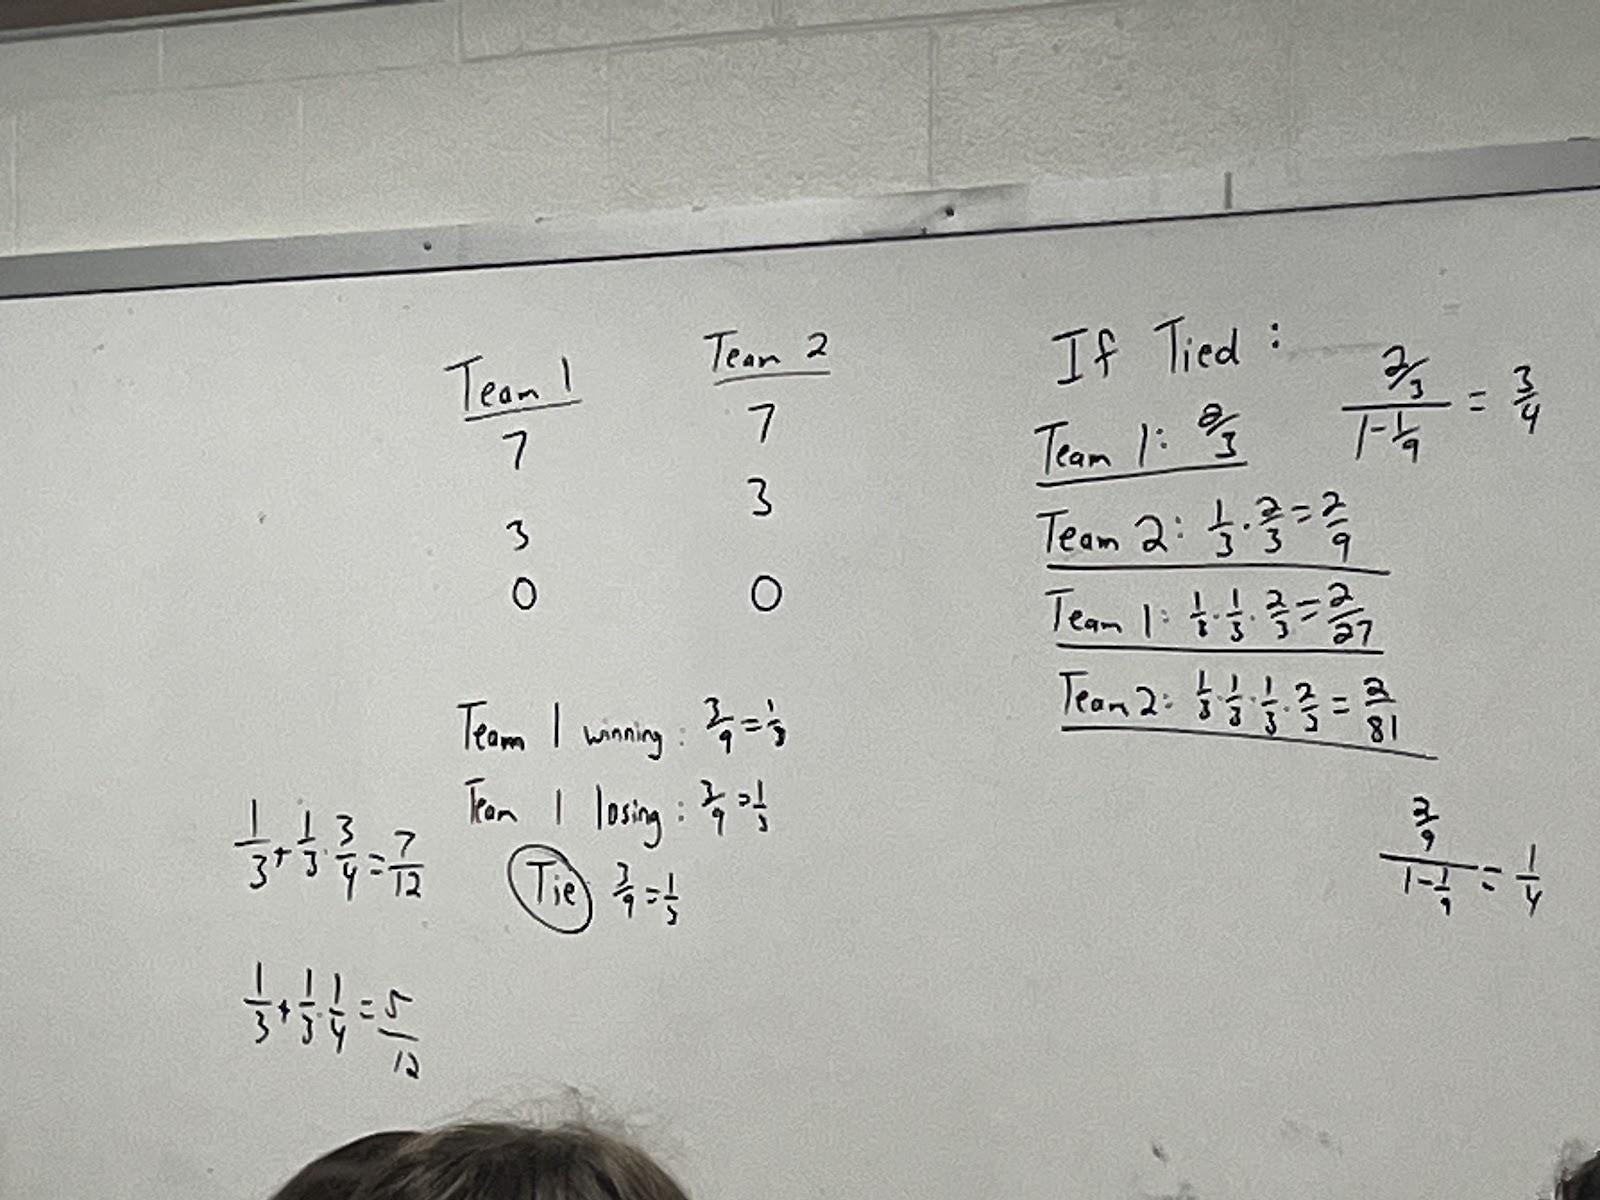 Team 1
7
3
0
Team 2
7
3
0
Team 1 winning: 3/9 = 1/3
Team 1 losing: 3/9 = 1/3
Tie 3/9 = 1/3
1/3 + 1/3 · 3/4 = 7/12
1/3 + 1/3 · 1/4 = 5/12
If Tied:
Team 1: 2/3
Team 2: 1/3 · 2/3 = 2/9
Team 1: 1/3 · 1/3 · 2/3 = 2/27
Team 2: 1/3 · 1/3 · 1/3 · 2/3 = 2/81
(2/3)/(1 - 1/9) = 3/4
(2/9)/(1 - 1/9) = 1/4